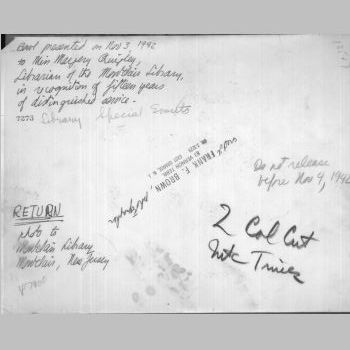 Bowl presented on Nov 3, 1942
to Miss Margery Quigley,
Librarian of the Montclair Library,
in recognition of fifteen years
of distinguished service.
7273 Library Special Events
FRANK F. BROWN,
VERNON TERR.
EAST ORANGE, N. J.
Do not release
before Nov 4, 1942
RETURN
photo to
Montclair Library
Montclair, New Jersey
2 Col Cut
Mtc Times